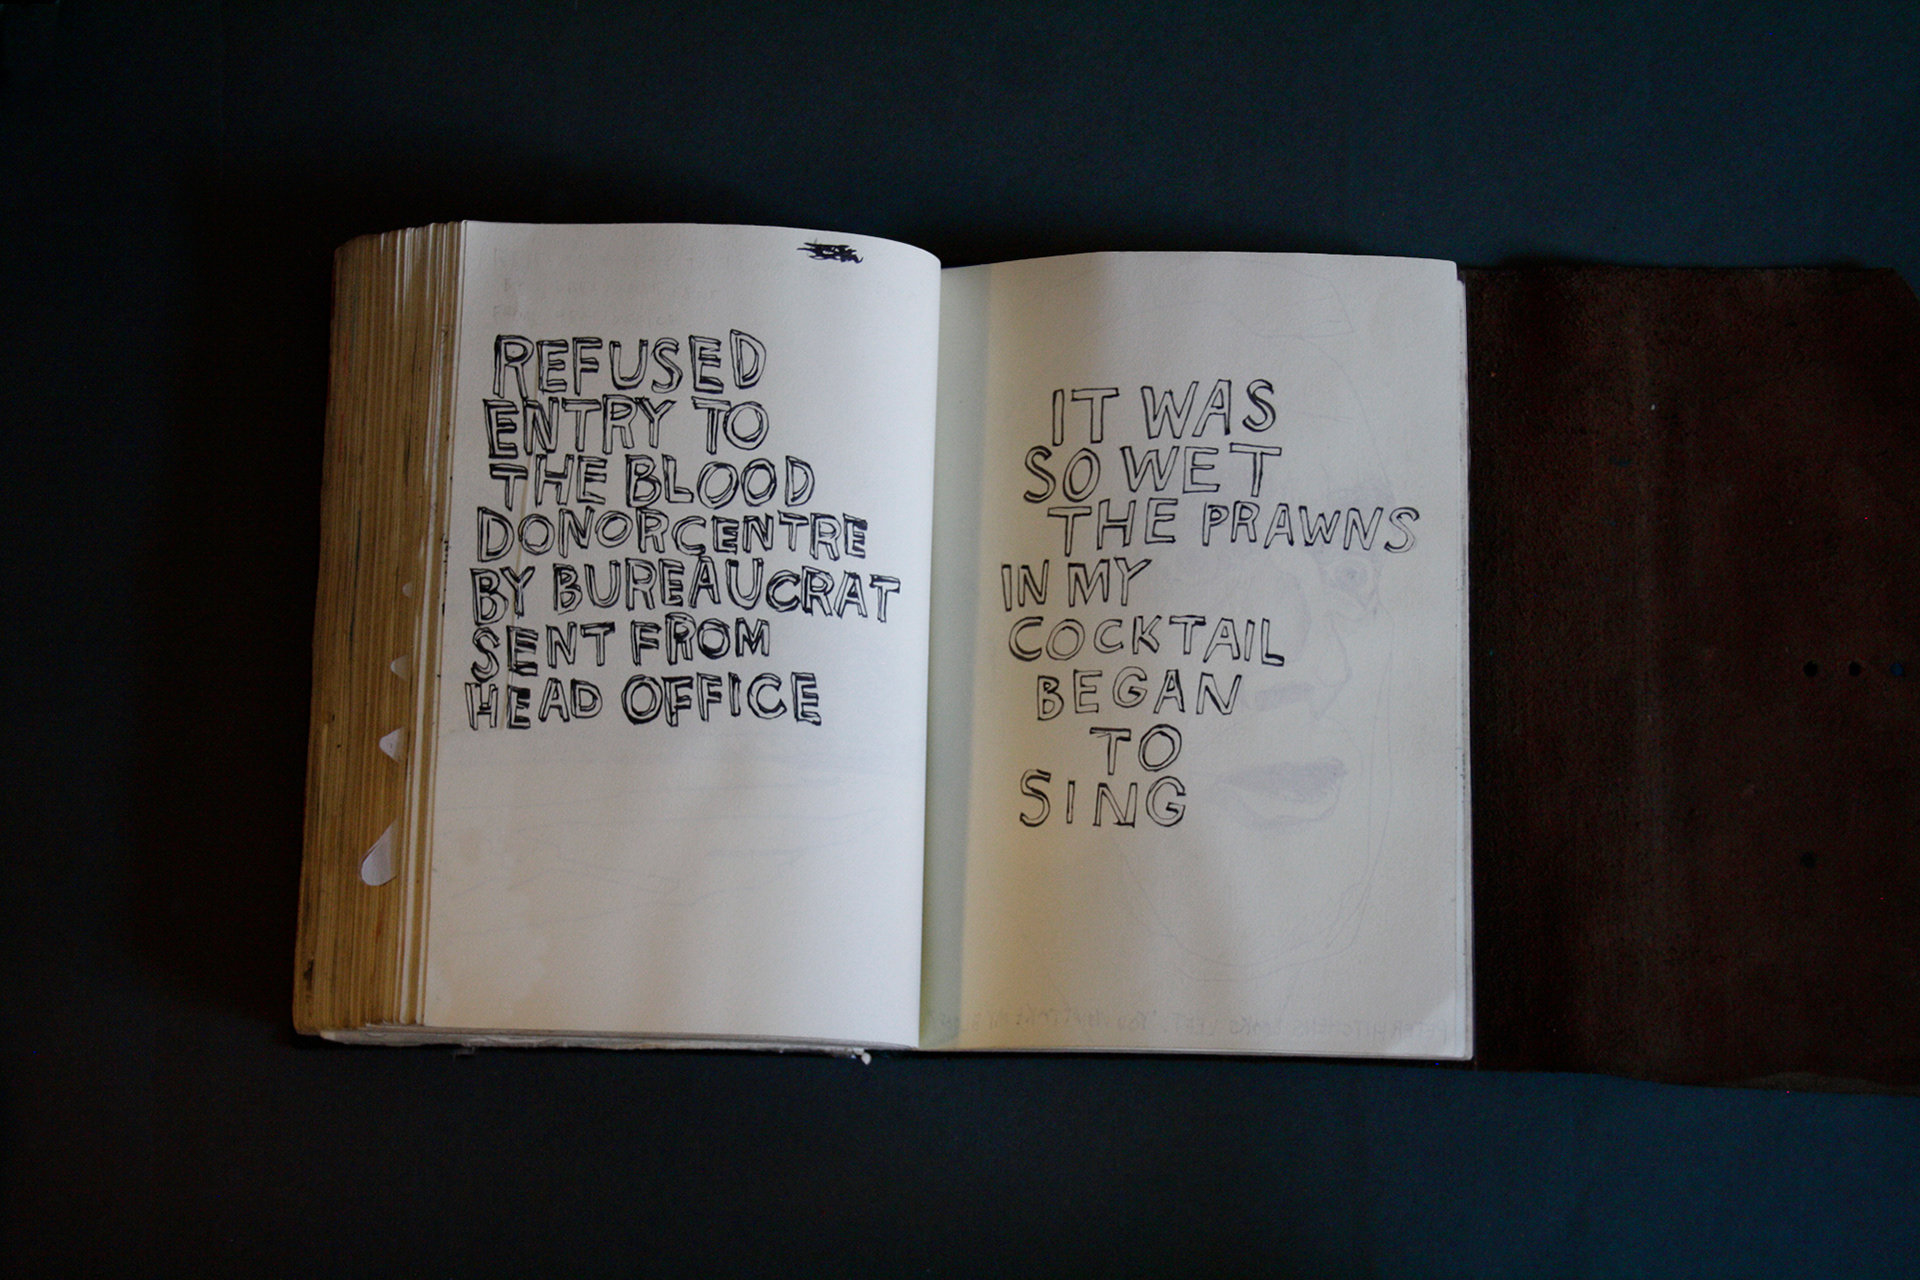 REFUSED
ENTRY TO
THE BLOOD
DONORCENTRE
BY BUREAUCRAT
SENT FROM
HEAD OFFICE
IT WAS
SO WET
THE PRAWNS
IN MY
COCKTAIL
BEGAN
TO
SING